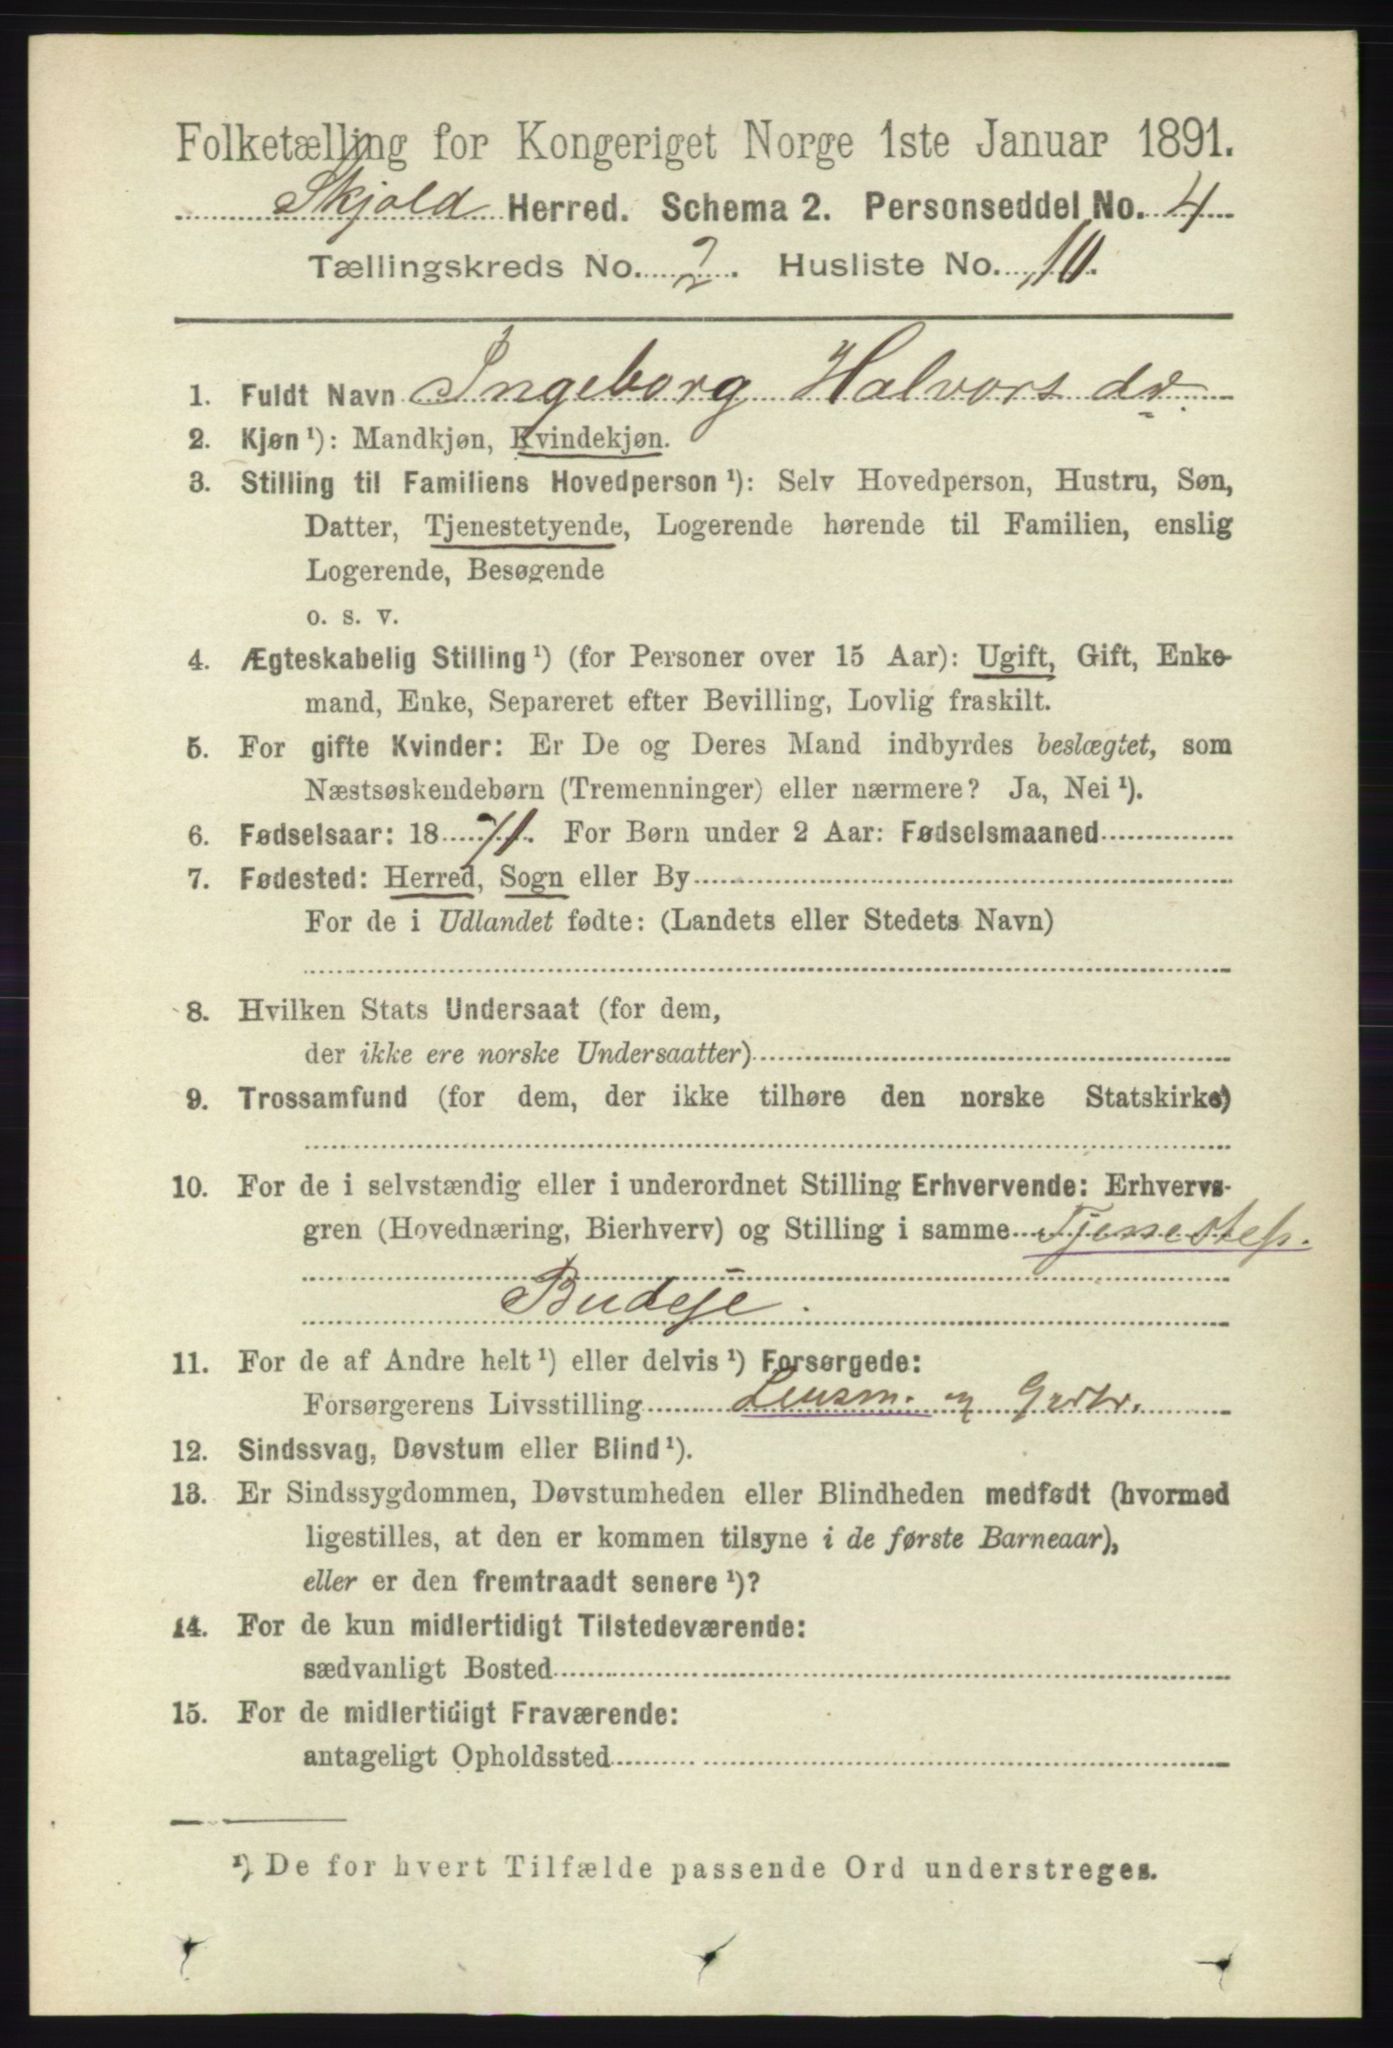 Folketælling for Kongeriget Norge 1ste Januar 1891.
Skjold Herred. Schema 2. Personseddel No. 4
Tællingskreds No. 2. Husliste No. 10.
1. Fuldt Navn Ingeborg Halvors dr.
2. Kjøn ¹): Mandkjøn, Kvindekjøn.
3. Stilling til Familiens Hovedperson ¹): Selv Hovedperson, Hustru, Søn,
Datter, Tjenestetyende, Logerende hørende til Familien, enslig
Logerende, Besøgende
o. s. v.
4. Ægteskabelig Stilling ¹) (for Personer over 15 Aar): Ugift, Gift, Enke-
mand, Enke, Separeret efter Bevilling, Lovlig fraskilt.
5. For gifte Kvinder: Er De og Deres Mand indbyrdes beslægtet, som
Næstsøskendebørn (Tremenninger) eller nærmere? Ja, Nei ¹).
6. Fødselsaar: 1871. For Børn under 2 Aar: Fødselsmaaned
7. Fødested: Herred, Sogn eller By
For de i Udlandet fødte: (Landets eller Stedets Navn)
8. Hvilken Stats Undersaat (for dem,
der ikke ere norske Undersaatter)
9. Trossamfund (for dem, der ikke tilhøre den norske Statskirke)
10. For de i selvstændig eller i underordnet Stilling Erhvervende: Erhvervs-
gren (Hovednæring, Bierhverv) og Stilling i samme Tjenestep.
Budeje.
11. For de af Andre helt ¹) eller delvis ¹) Forsørgede:
Forsørgerens Livsstilling Lensm. og Grdbr.
12. Sindssvag, Døvstum eller Blind ¹).
13. Er Sindssygdommen, Døvstumheden eller Blindheden medfødt (hvormed
ligestilles, at den er kommen tilsyne i de første Barneaar),
eller er den fremtraadt senere ¹)?
14. For de kun midlertidigt Tilstedeværende:
sædvanligt Bosted
15. For de midlertidigt Fraværende:
antageligt Opholdssted
¹) De for hvert Tilfælde passende Ord understreges.